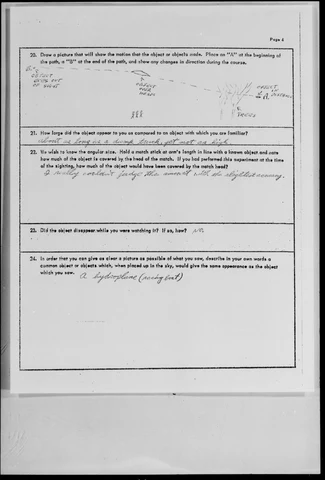 Page 6
20. Draw a picture that will show the motion that the object or objects made. Place an "A" at the beginning of
the path, a "B" at the end of the path, and show any changes in direction during the course.
OBJECT
OUT
OF SIGHT
OBJECT
OVER
OBJECT
TREES
21. How large did the object appear to you as compared to an object with which you are familiar?
about as long as a dump truck, yet not as high.
22. We wish to know the angular size. Hold a match stick at arm's length in line with a known object and note
how much of the object is covered by the head of the match. If you had performed this experiment at the time
of the sighting, how much of the object would have been covered by the match head?
I really couldn't judge this amount with the slightest accuracy.
23. Did the object disappear while you were watching it? If so, how? NO
24. In order that you can give as clear a picture as possible of what you saw, describe in your own words a
common object or objects which, when placed up in the sky, would give the same appearance as the object
which you saw.
A hydroplane (racing boat)